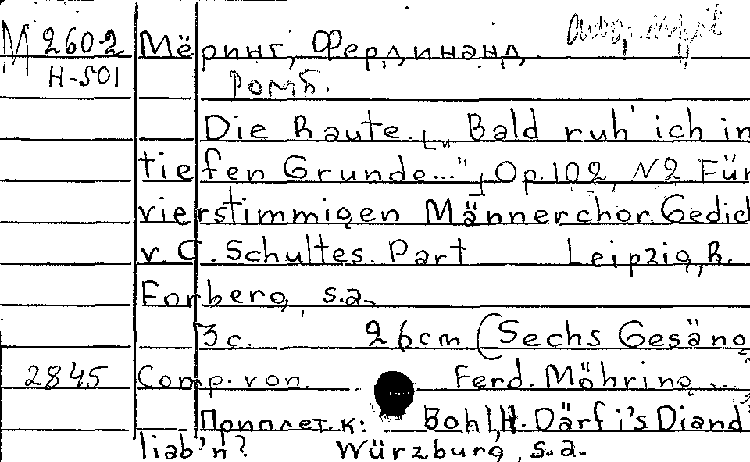 M 260-2 Мёринг, Фердинанд.
H-501
Die Raute. [„Bald ruh' ich in
tiefen Grunde..."], Op. 102, N2 Für
vierstimmigen Männerchor. Gedic
v. C. Schultes. Part Leipzig, R.
Forberg, s.a.
3 c. 26 cm (Sechs Gesäng
2845 Comp. von Ferd. Möhring
Приплет. к: Bohl, H. Därf i's Diand
liab'n? Würzburg, s.a.